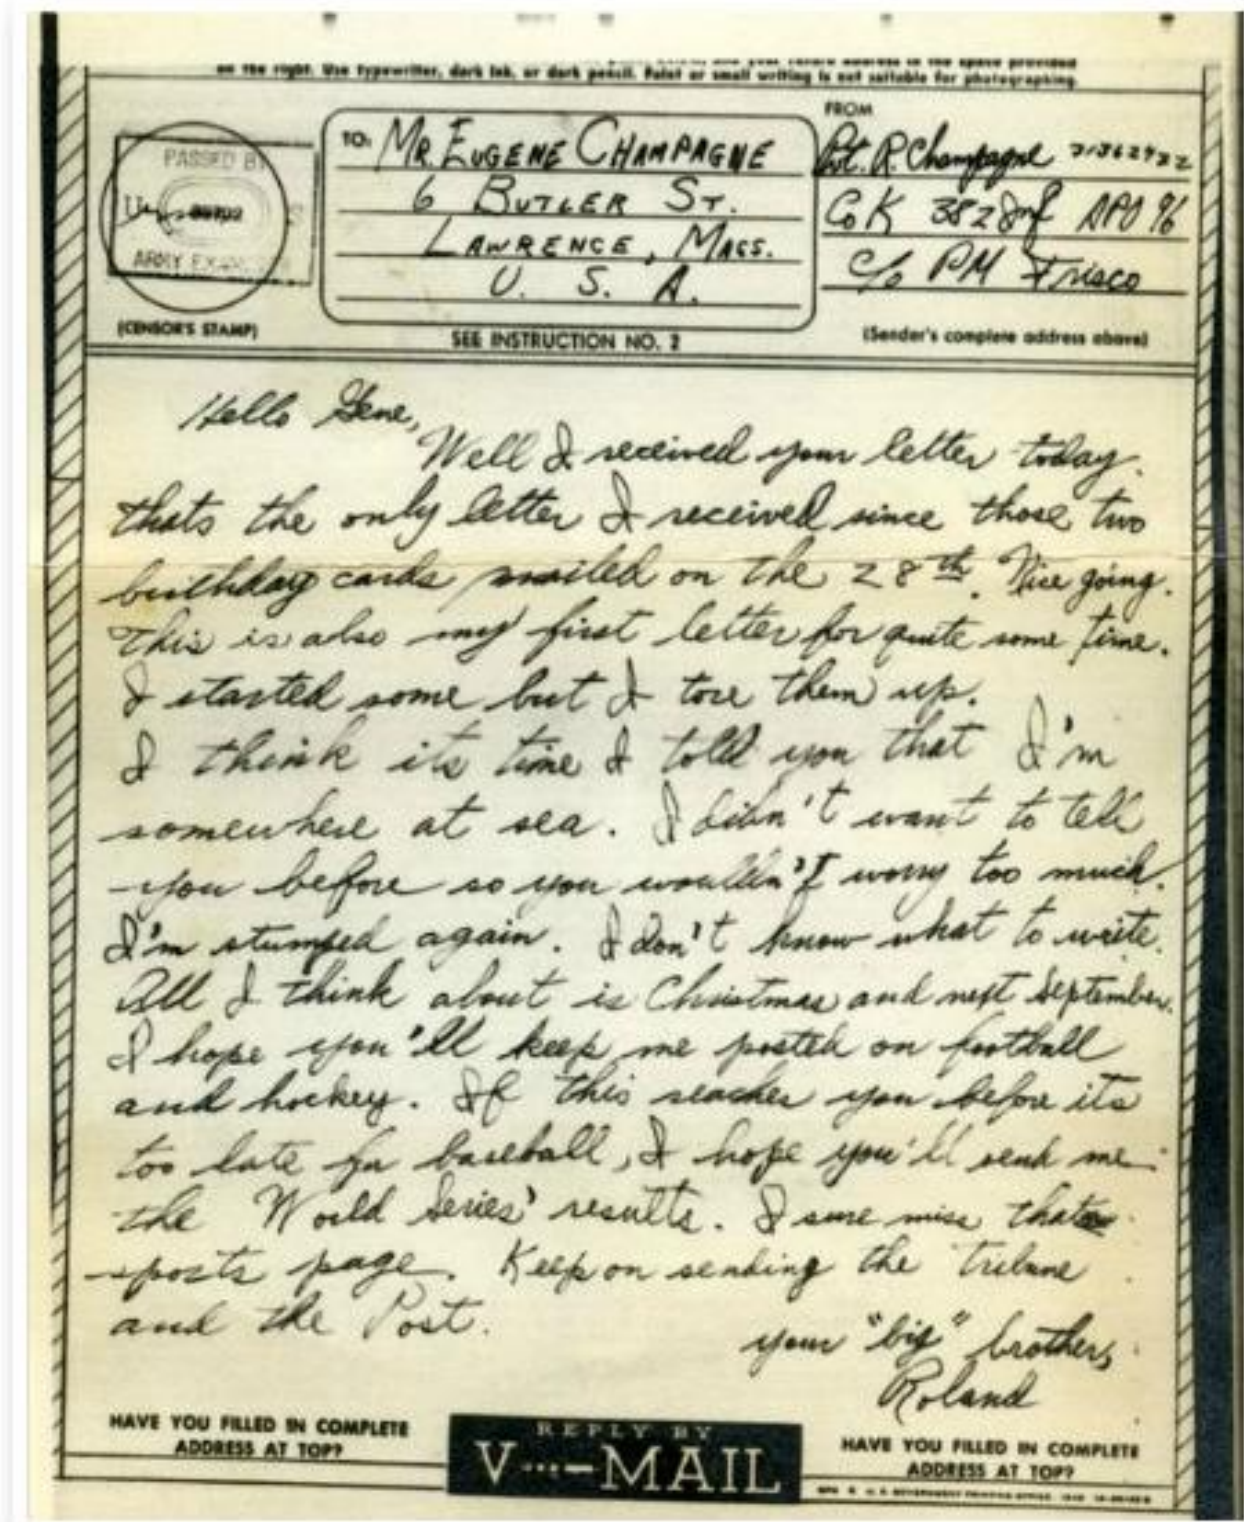 on the right. Use typewriter, dark ink, or dark pencil. Faint or small writing is not suitable for photographing.
PASSED BY
U S
ARMY EXAMINER
(CENSOR'S STAMP)
TO: MR. EUGENE CHAMPAGNE
6 BUTLER ST.
LAWRENCE, MASS.
U. S. A.
SEE INSTRUCTION NO. 2
FROM
Pvt. R. Champagne
Co K 382 Inf APO 96
c/o PM Frisco
(Sender's complete address above)
Hello Gene,
Well I received your letter today.
thats the only letter I received since those two
birthday cards mailed on the 28th. Nice going.
This is also my first letter for quite some time.
I started some but I tore them up.
I think its time I told you that I'm
somewhere at sea. I didn't want to tell
you before so you wouldn't worry too much.
I'm stumped again. I don't know what to write.
All I think about is Christmas and next September.
I hope you'll keep me posted on football
and hockey. If this reaches you before its
too late for baseball, I hope you'll send me
the World Series' results. I sure miss that
sports page. Keep on sending the Tribune
and the Post.
your "big" brother,
Roland
HAVE YOU FILLED IN COMPLETE
ADDRESS AT TOP?
REPLY BY
V···—MAIL
HAVE YOU FILLED IN COMPLETE
ADDRESS AT TOP?